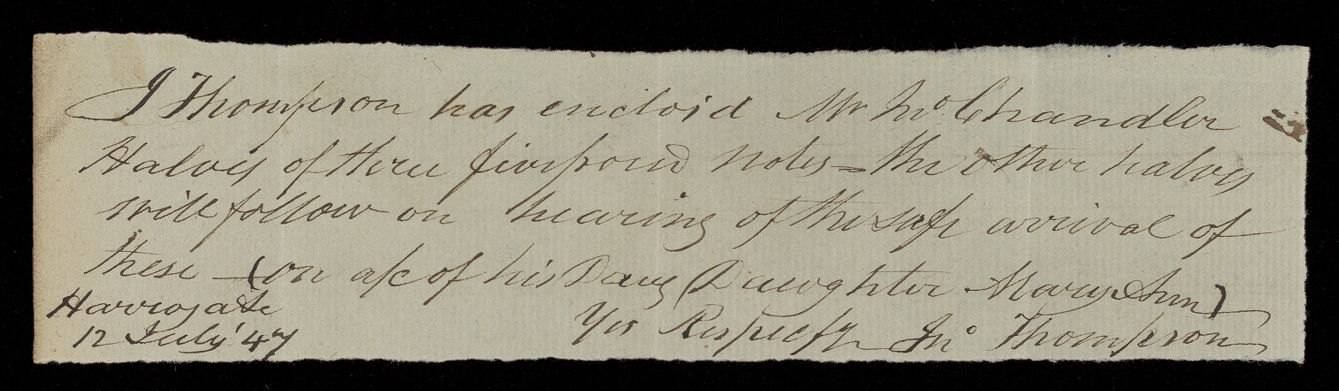 J Thompson has enclos'd Mr Jno Chandler
Halves of three five pound notes = the other halves
will follow on hearing of the safe arrival of
these - (on a/c of his Daug Daughter Mary Ann)
Harrogate
12 July '47
Yrs Respecfy Jno Thompson